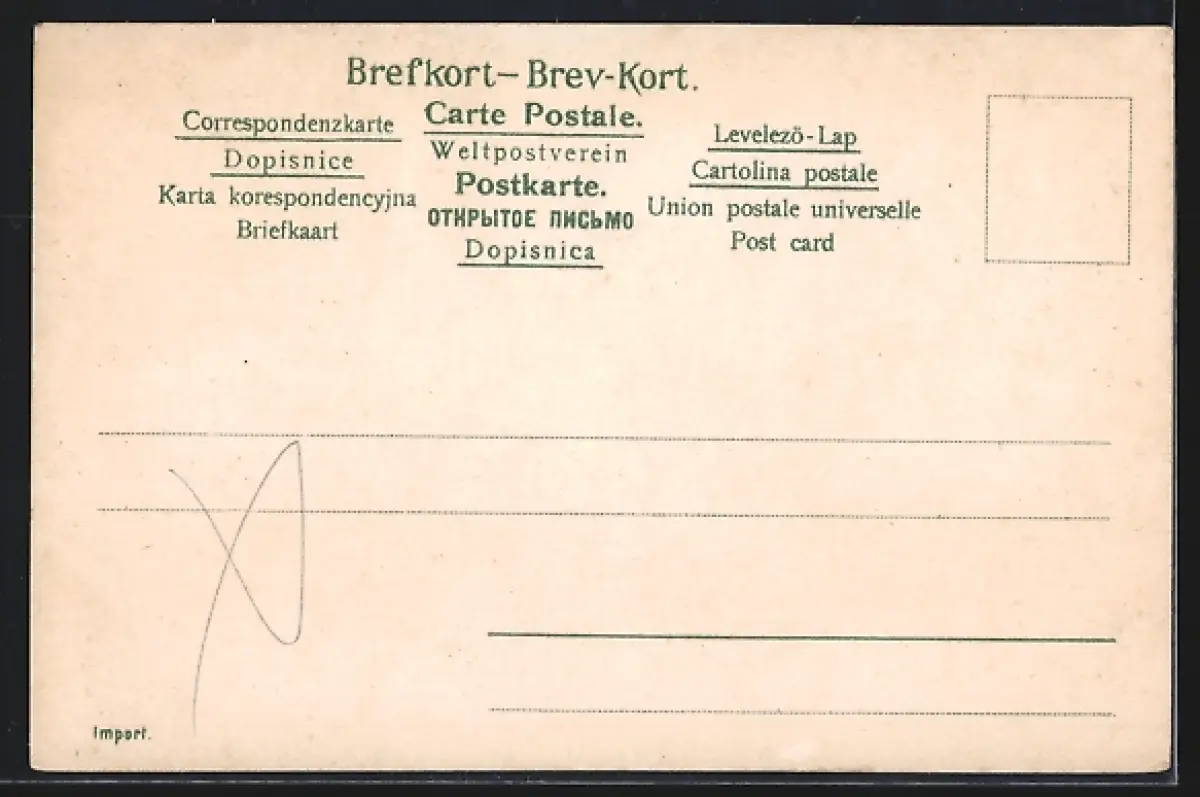 Brefkort– Brev-Kort.
Correspondenzkarte
Dopisnice
Karta korespondencyjna
Briefkaart
Carte Postale.
Weltpostverein
Postkarte.
ОТКРЫТОЕ ПИСЬМО
Dopisnica
Levelező-Lap
Cartolina postale
Union postale universelle
Post card
Import.